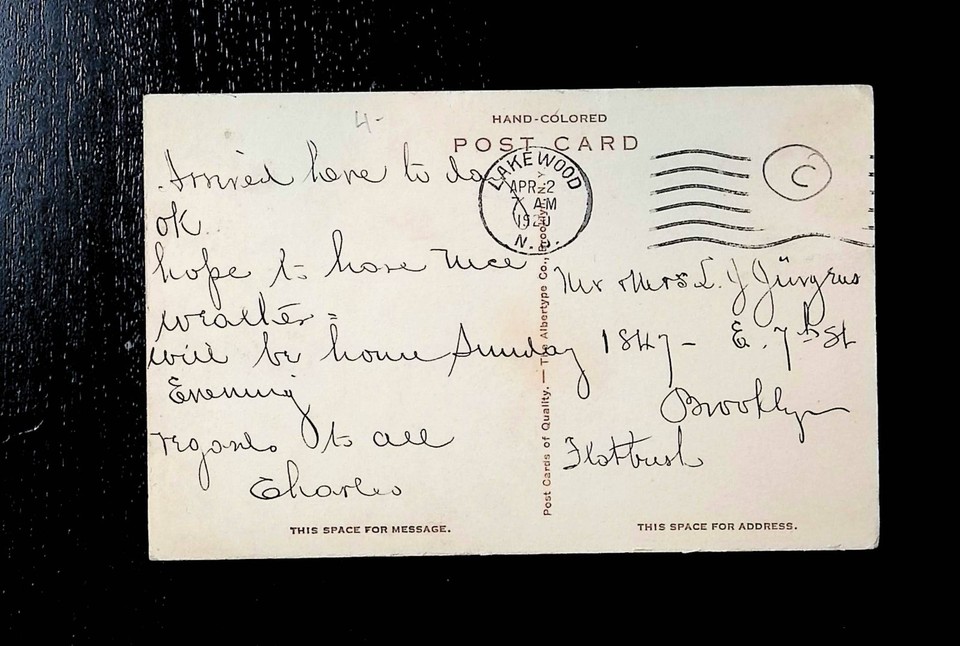 4-
HAND-COLORED
POST CARD
LAKEWOOD
APR 2
7 AM
192
N.J.
C
Arrived here to day
ok
hope to have nice
weather =
will be home Sunday
Evening
regards to all
Charles
Mr Mrs L. J Jürgens
1847- E. 7th St
Brooklyn
Flatbush
Post Cards of Quality. — The Albertype Co., Brooklyn, N.Y.
THIS SPACE FOR MESSAGE.
THIS SPACE FOR ADDRESS.